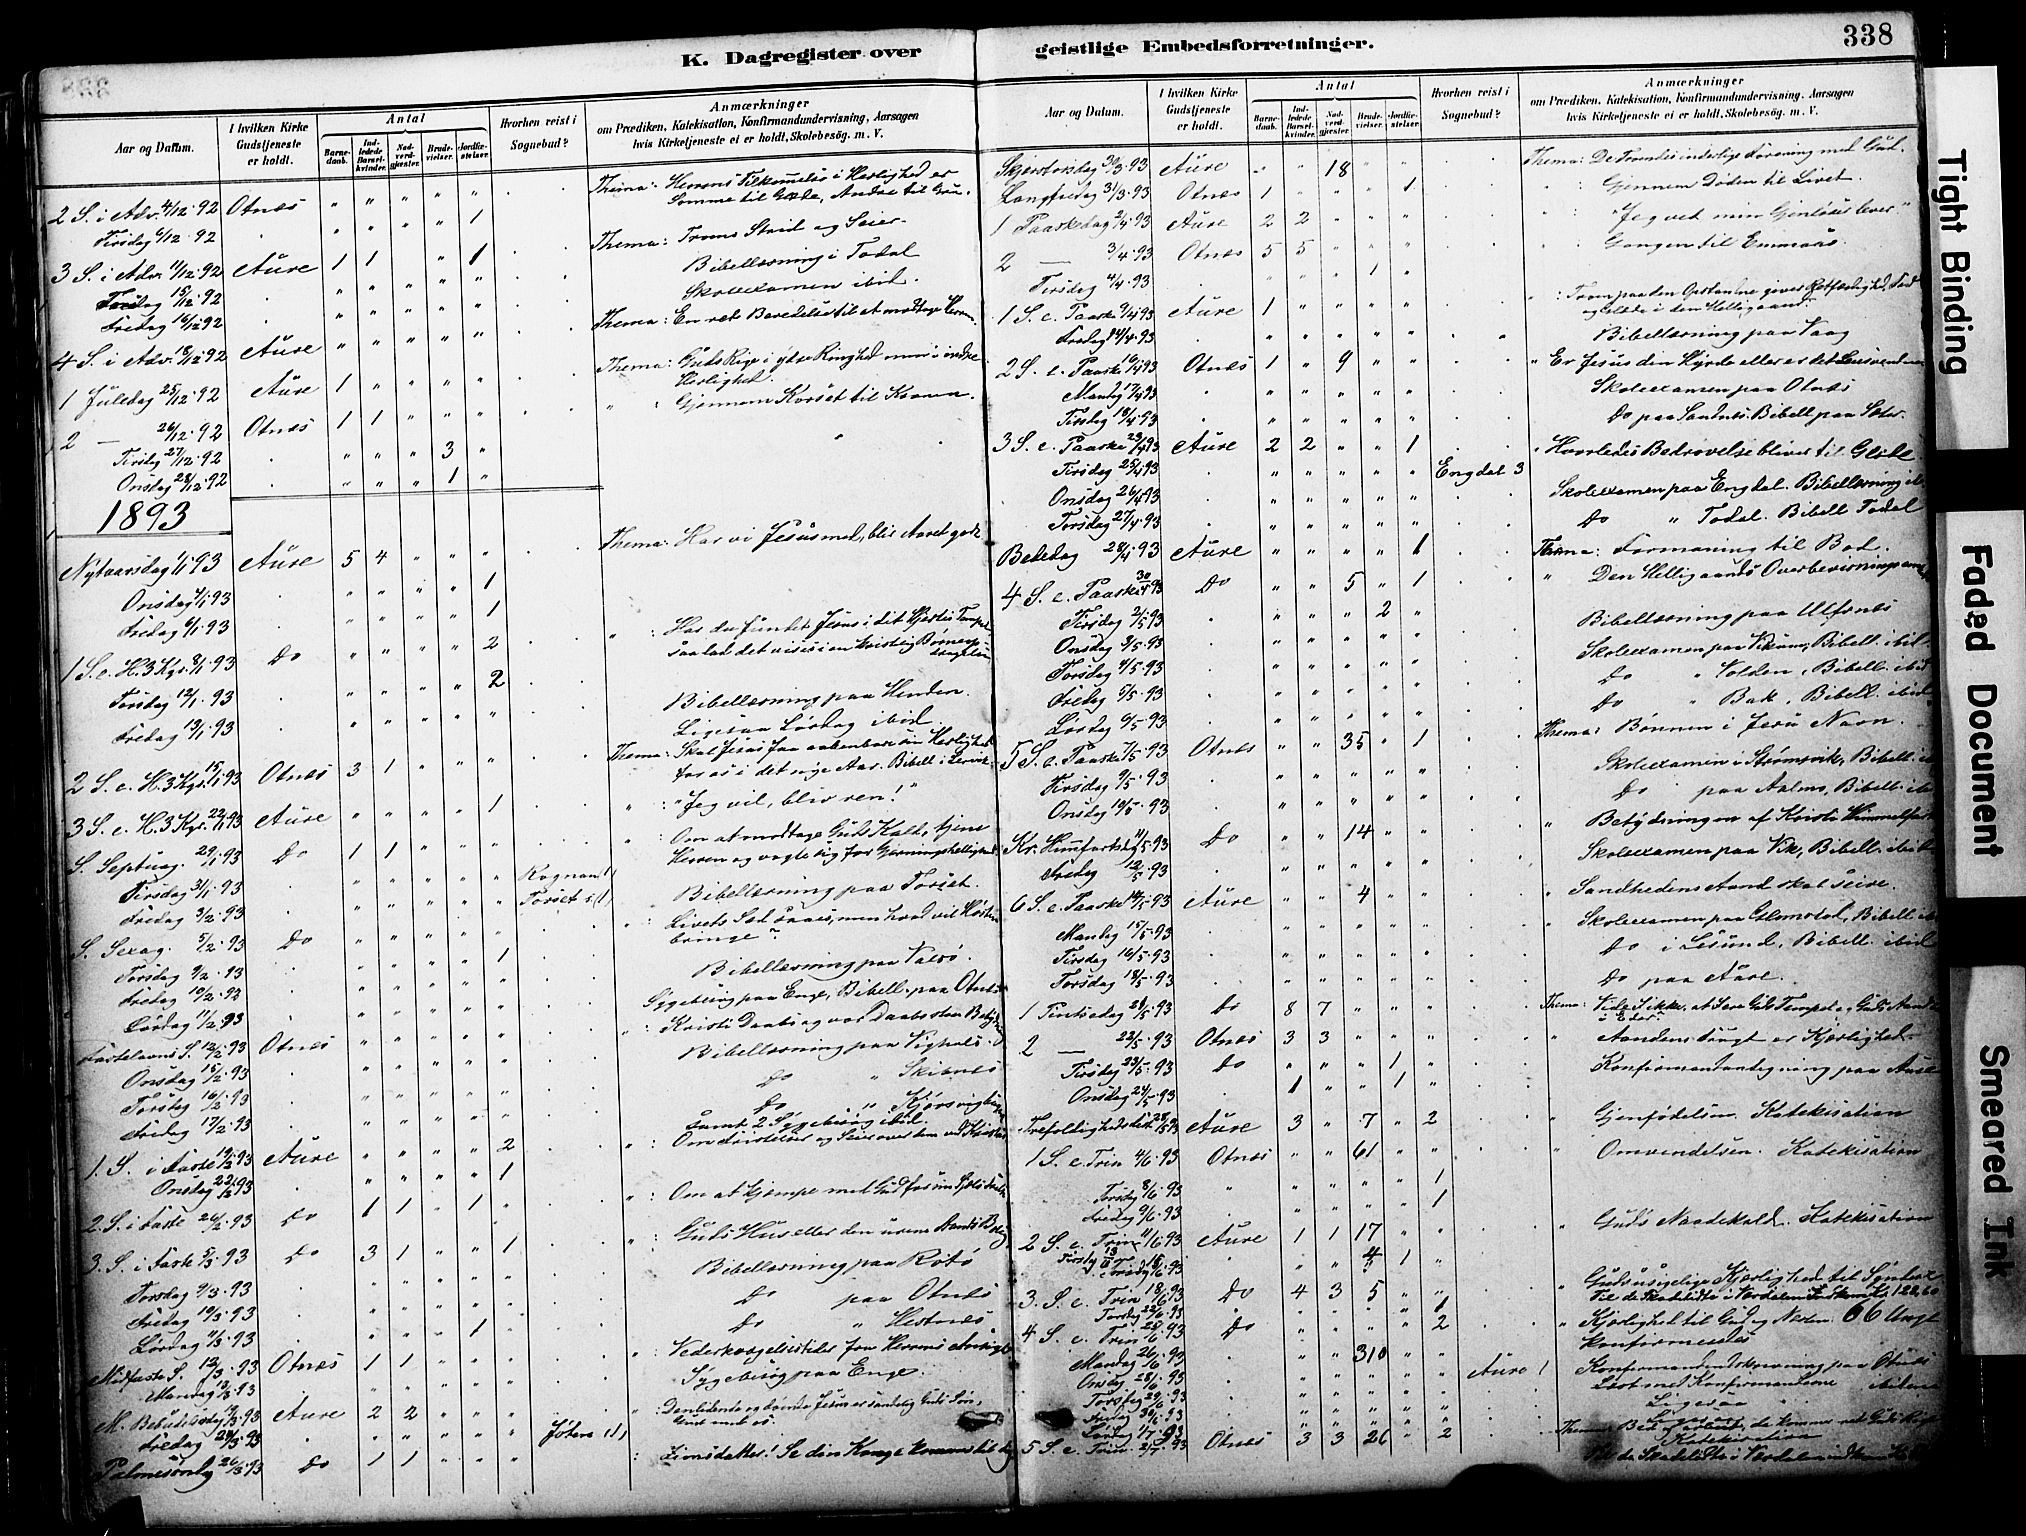 338
K. Dagregister over geistlige Embedsforretninger.
Aar og Datum.
I hvilken Kirke Gudstjeneste er holdt.
Antal
Barne-daab.
Ind-ledede Barsel-kvinder.
Nad-verd-gjester.
Brude-vielser.
Jordfæ-stelser.
Hvorhen reist i Sognebud?
Anmærkninger
om Prædiken, Katekisation, Konfirmandundervisning, Aarsagen
hvis Kirketjeneste ei er holdt, Skolebesøg. m. V.
2 S. i Adv. 4/12 92 Otnes " " " " " Thema: Herrens Tilkommelse i Herlighed er
Somme til Glæde, Andre til Gru.
Tirsdag 6/12 92 " " " " 1
3 S. i Adv. 11/12 92 Aure 1 1 " " 1 Thema: Troens Strid og Seier
Torsdag 15/12 92 " " " " " Bibellæsning i Todal
Fredag 16/12 92 " " " " " Skoleexamen ibid.
4 S. i Adv. 18/12 92 Aure " " " " " Thema: En ret Beredelse til at modtage Herren.
1 Juledag 25/12 92 Aure 1 " " " " Thema: Guds Rige i ydre Ringhed men i indre
Herlighed.
2 — 26/12 92 Otnes 1 1 " " " " : Gjennem Korset til Kronen.
Tirsdag 27/12 92 " " " 3 "
Onsdag 28/12 92 " " " 1 "
1893
Nytaarsdag 1/1 93 Aure 5 4 " " " Thema: Har vi Jesus med, blir Aaret godt
Onsdag 4/1 93 " " " " 1
Fredag 6/1 93 " " " " 1
1 S. e. H. 3 Kgr. 8/1 93 Do " " " " 2 " : Har du fundet Jesus i det Hjertes Tempel
saa lad det vises i en kristelig Børneop-
dragelse
Torsdag 12/1 93 " " " " 2 Bibellæsning paa Henden.
Fredag 13/1 93 " " " " " Ligesaa Lørdag ibid.
2 S. e. H. 3 Kgr. 15/1 93 Otnes 3 1 " " " Thema: Skal Jesus faa aabenbare sin Herlighed
for os i det nye Aar. Bibell. i
3 S. e. H. 3 Kgr. 22/1 93 Aure " " " " 1 " : "Jeg vil, bliv ren!"
S. Septuag. 29/1 93 Do 1 1 " " " " : Om at modtage Guds Kald, tjene
Herren og vogte sig for Gjerningshellighed.
Tirsdag 31/1 93 " " " " " Rognan
Fredag 3/2 93 " " " " " Torset Bibellæsning paa Torset.
S. Sexag. 5/2 93 Do " " " " " " : Livets Sæd saaes, men hvad vil Høsten
bringe?
Torsdag 9/2 93 " " " " 1 Bibellæsning paa
Fredag 10/2 93 " " " " "
Lørdag 11/2 93 " " " " " Sygebesøg paa Enge, Bibell. paa Otnes
Fastelavns S. 12/2 93 Otnes " " " " " " : Kristi Daab og vor Daab
Onsdag 15/2 93 " " " " " Bibellæsning paa
Torsdag 16/2 93 " " " " " Do " Skibnes
Fredag 17/2 93 " " " " " Do "
samt 2 Sygebesøg ibid.
1. S. i Faste 19/2 93 Aure " " " " 2 " : Om Fristelser og Seier over dem ved Kristus
Onsdag 22/2 93 " " " " 1
2. S. i Faste 26/2 93 Do 1 1 " 1 " " : Om at kjempe med Gud for sin Sjæls
3. S. i Faste 5/3 93 Do 3 1 " " 1 " : Guds Hus eller den urene Aands Bolig
Torsdag 9/3 93 " " " " " Bibellæsning paa
Fredag 10/3 93 " " " " " Do paa Otnes
Lørdag 11/3 93 " " " " 1 Do " Hestnes
Midfaste S. 12/3 93 Otnes 1 1 " " " " : Vederkvægelsestider fra Herrens Ansigt
Mandag 13/3 93 " " " " " Sygebesøg paa Enge.
M. Bebudelsesdag 19/3 93 Aure 2 2 " " " " : Den lidende og døende Jesus er sandelig Guds Søn,
Gud med os.
Fredag 24/3 93 " " " " "
Palmesøndag 26/3 93 Do 1 1 " " " : Zions Datter! Se din Konge kommer til dig
Aar og Datum.
I hvilken Kirke Gudstjeneste er holdt.
Antal
Barne-daab.
Ind-ledede Barsel-kvinder.
Nad-verd-gjester.
Brude-vielser.
Jordfæ-stelser.
Hvorhen reist i Sognebud?
Anmærkninger
om Prædiken, Katekisation, Konfirmandundervisning, Aarsagen
hvis Kirketjeneste ei er holdt, Skolebesøg. m. V.
Skjærtorsdag 30/3 93 Aure " " 18 " " Thema: De Troendes inderlige Forening med Gud.
Langfredag 31/3 93 Otnes 1 " " " 1 " : Gjennem Døden til Livet.
1 Paaskedag 2/4 93 Aure 2 2 " " " " : "Jeg ved min Gjenløser lever"
2 — 3/4 93 Otnes 5 5 " " " " : Gangen til Emmaus.
Tirsdag 4/4 93 " " " 1 "
1 S. e. Paaske 9/4 93 Aure 1 " " " " " : Troen paa den Opstandne giver Retfærdighed, Fred
og Glæde i den Helligaand.
Fredag 14/4 93 " " " " " Bibellæsning paa Vaag
2 S. e. Paaske 16/4 93 Otnes 1 " 9 " " " Er Jesus din Hyrde eller er det
Mandag 17/4 93 " " " " " Skoleexamen paa Otnes
Tirsdag 18/4 93 " " " " " Do paa Sandnes. Bibell. paa
3 S. e. Paaske 23/4 93 Aure 2 2 " " 1 " Hvorledes Bedrøvelse bliver til Glæde
Tirsdag 25/4 93 " " " " " Engdal 3
Onsdag 26/4 93 " " " " " Skoleexamen paa Engdal. Bibellæsning
Torsdag 27/4 93 " " " " " Do " Todal. Bibell. Todal
Bededag 28/4 93 Aure " " " " 1 Thema: Formaning til Bod.
4 S. e. Paaske 30/4 93 Do " " 5 " 1 " Den Helligaands Overbevisning
Tirsdag 2/5 93 " " " 2 " Bibellæsning paa Ulfsnes
Onsdag 3/5 93 " " " " " Skoleexamen paa Vikan, Bibell. ibid.
Torsdag 4/5 93 " " " " " Do " Volden, Bibell. ibid
Fredag 5/5 93 " " " " " Do " Bak, Bibell. ibid
Lørdag 6/5 93 " " " " "
5 S. e. Paaske 7/5 93 Otnes " " 35 " 1 Thema: Bønnen i Jesu Navn.
Tirsdag 9/5 93 " " " " " Skoleexamen i Strømsvik, Bibell.
Onsdag 10/5 93 " " " " " Do paa Aalmo, Bibell.
Kr. Himfartsdag 11/5 93 Do " " 14 " " " Betydningen af Kristi Himmelfart
Fredag 12/5 93 " " " " " Skoleexamen paa Vik, Bibell. ibid
6 S. e. Paaske 14/5 93 Aure " " 4 " " " Sandhedens Aand skal seire.
Mandag 15/5 93 " " " " " Skoleexamen paa Gloms[...]
Tirsdag 16/5 93 " " " " " Do i Lesund, Bibell. ibid
Torsdag 18/5 93 " " " " " Do paa Aure.
1 Pintsedag 21/5 93 Do 8 7 " " " Thema: Vide I ikke, at I ere Guds Tempel og Guds Aand
i Eder?
2 — 22/5 93 Otnes 3 3 " " " " Aandens Frugt er Kjærlighed.
Tirsdag 23/5 93 Do " " " 1 " Konfirmantantegning paa Aure
Onsdag 24/5 93 1 " " 1 "
Trefoldighedsfest 28/5 93 Aure 3 " 7 " 2 " Gjenfødelsen. Katekisation
1 S. e. Trin 4/6 93 Otnes " " 61 " " " Omvendelsen. Katekisation
Torsdag 8/6 93 " " " " 1
Fredag 9/6 93 " " " " 1
2 S. e. Trin 11/6 93 Aure 1 1 17 " " " Guds Naadekald. Katekisation
Torsdag 15/6 93 " " 4 1 "
3. S. e. Trin 18/6 93 Do 4 3 5 " " " Guds usigelige Kjærlighed til Syndere
Til de Skadelidte i Værdalen indkom Kr. 122,60
Torsdag 22/6 93 " " " " 1
4 S. e. Trin 25/6 93 Do " " " " 2 " Kjærlighed til Gud og Næsten. 66 Unge
konfirmeredes
Mandag 26/6 93 " " 310 " "
Onsdag 28/6 93 Aure 1 Konfirmandindskrivning paa Otnes
Torsdag 29/6 93 Læst med Konfirmanterne ibidem
Fredag 30/6 93 Ligesaa
Lørdag 1/7 93 Ligesaa
5 S. e. Trin. 2/7 93 Otnes 3 3 26 " 2 Thema:
Katekisation
Til de Skadelidte i Værdalen indkom Kr.
Tight Binding
Faded Document
Smeared Ink